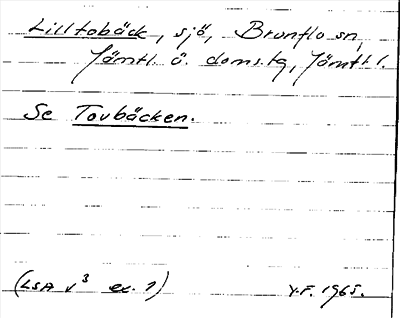 Lilltobäck, sjö, Brunflo sn,
Jämtl. ö. doms.tg, Jämtl.
Se Tovbäcken.
(LSA v³ ex. 1) Y.F. 1965.